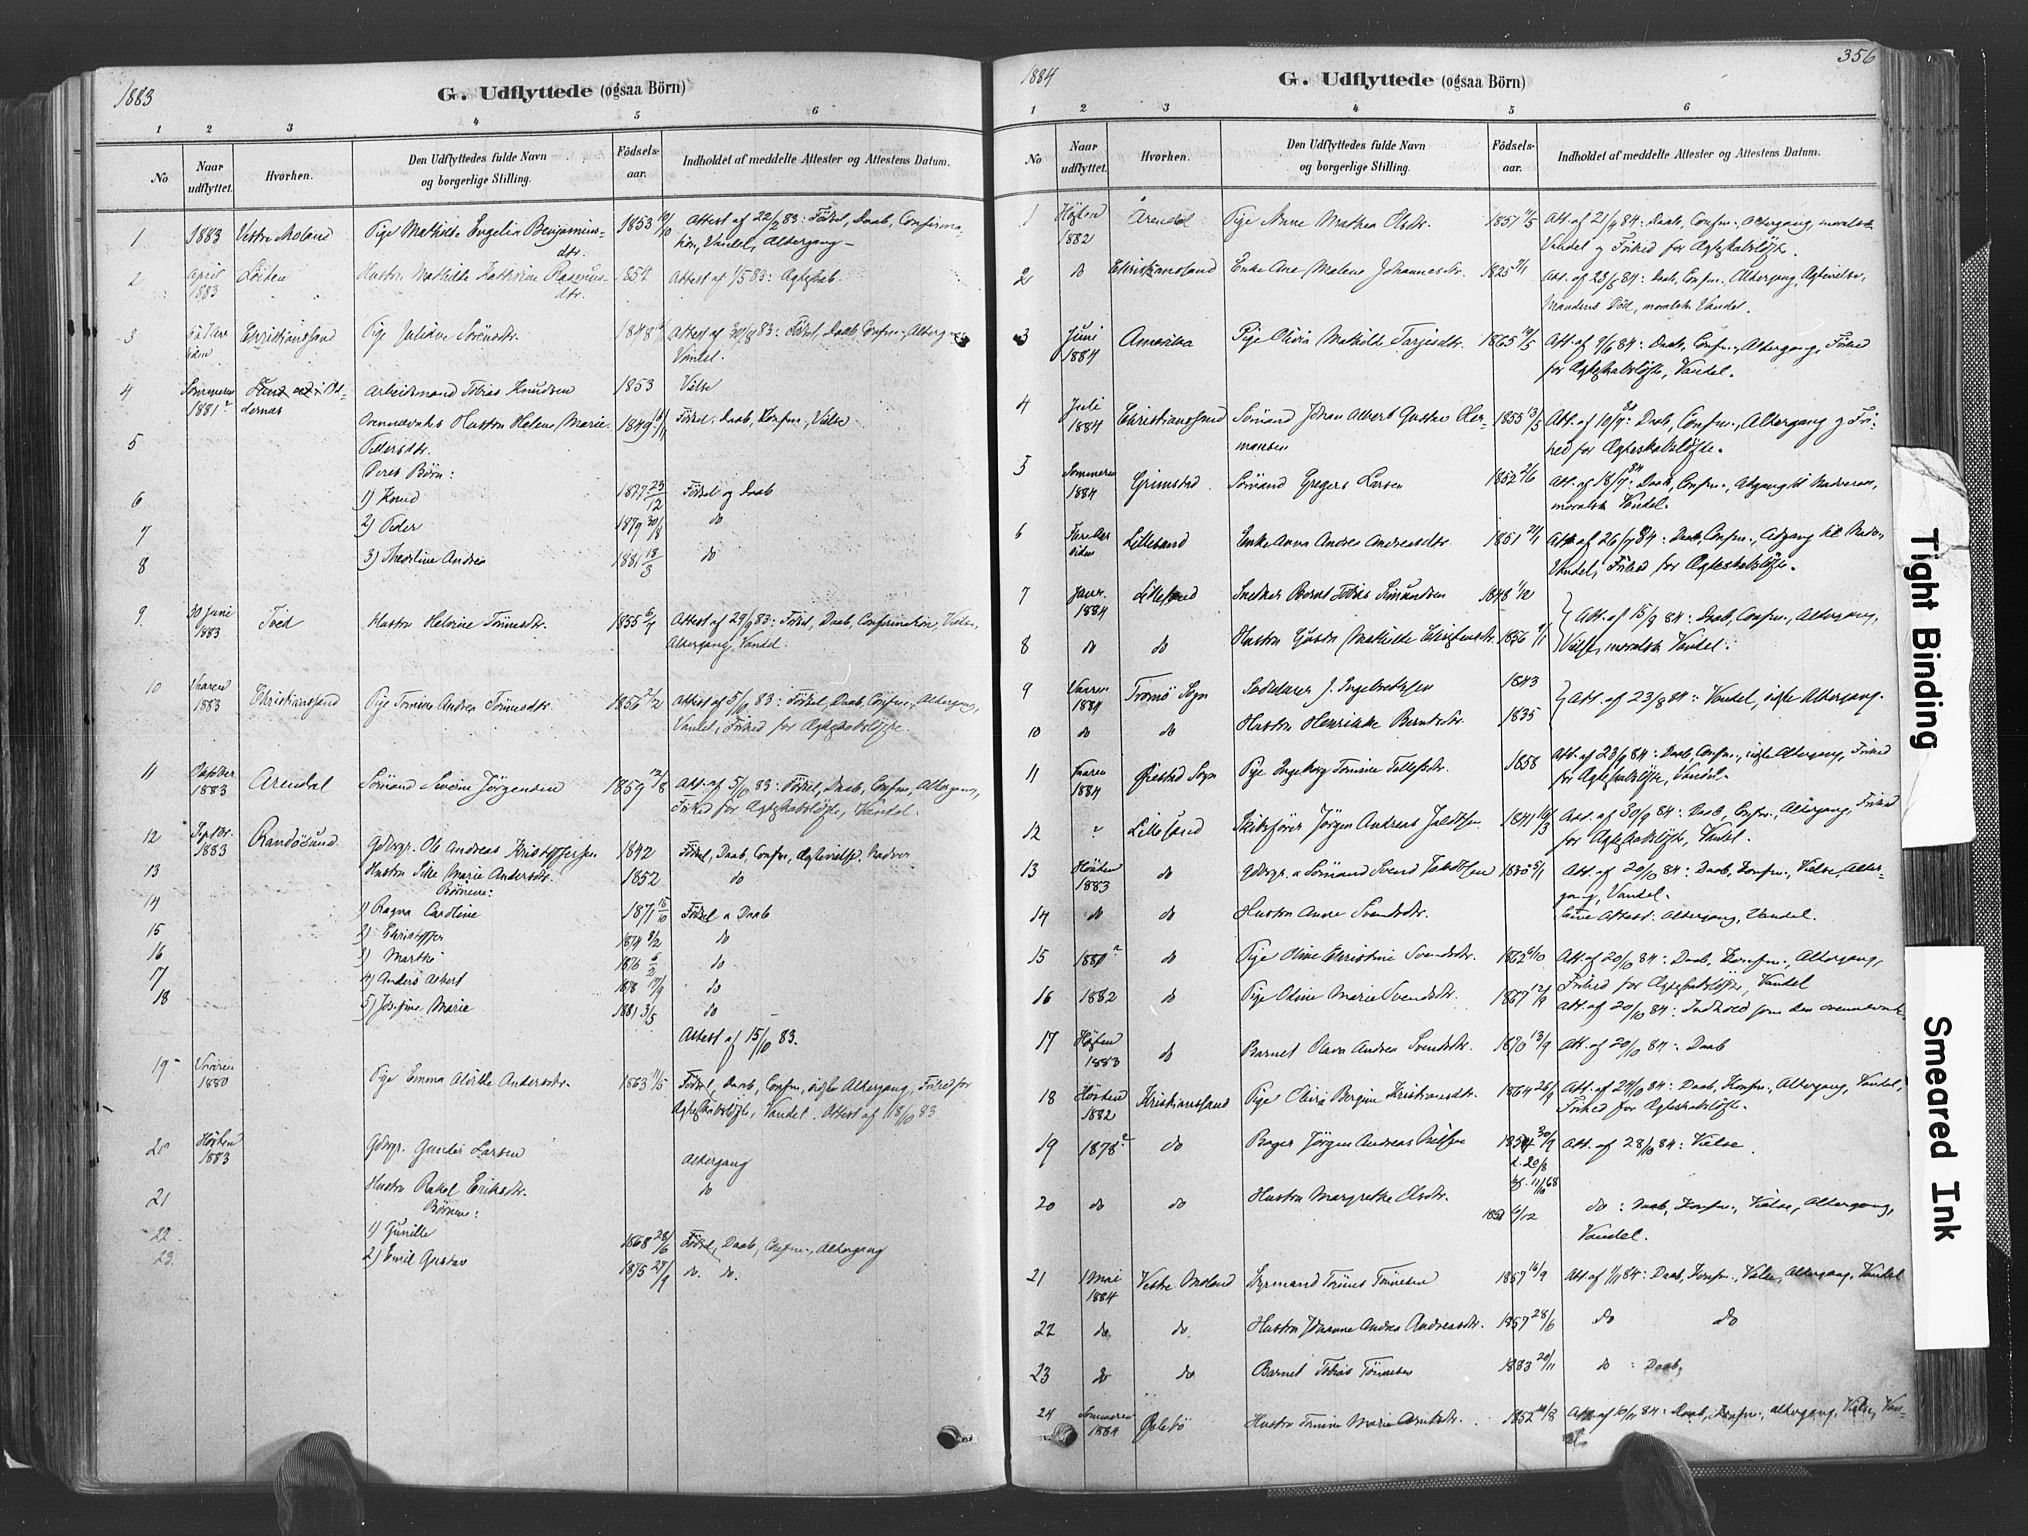 1883
G. Udflyttede (ogsaa Börn)
1 2 3 4 5 6
No
Naar udflyttet.
Hvorhen.
Den Udflyttedes fulde Navn og borgerlige Stilling.
Fødsels-aar.
Indholdet af meddelte Attester og Attestens Datum.
1 1883 Vestre Moland Pige Mathilde Engelia Benjamins- 1853 19/10 Attest af 22/2 83: Fødsel, Daab, Confirma-
dtr. tion, Vandel, Altergang
2 April Løiten Hustru Mathilde Kathrine Rasmus- 1854 Attest af 1/5 83: Ægteskab.
1883 dtr.
3 Christianssand Pige Juliane Sørensdtr. 1848 Attest af 30/8 83: Fødsel, Daab, Confm., Altergang
Vandel.
4 Sommeren Arbeidsmand Tobias Knudsen 1853 Vielse
1881
5 Ovennævntes Hustru Helene Marie 1849 Fødsel, Daab, Konfm., Vielse
Pedersdtr.
Deres Børn:
6 1) Knud 1877 23/12 Fødsel og Daab
7 2) Peder 1879 30/8 do
8 3) Theoline Andrea 1881 13/3 do
9. 30 Juni Tved Hustru Helene Tönnesdtr. 1855 6/9 Attest af 29/9 83: Fødsel, Daab, Confirmation, Vielse,
1883 Altergang, Vandel.
10 Vaaren Christianssand Pige Tomine Andrea Tönnesdtr. 1856 2/2 Attest af 5/10 83: Fødsel, Daab, Confm., Altergang,
1883 Vandel, Frihed for Ægteskabsløfte.
11 Oktober Arendal Sømand Severin Jørgensen 1859 12/8 Att. af 5/10 83: Fødsel, Daab, Confm., Altergang,
1883 Frihed for Ægteskabsløfte, Vandel.
12 Septbr. Randøsund Gdbrgr. Ole Andreas Kristoffersen 1842 Fødsel, Daab, Confm., Ægtevielse, Nadver
1883
13 Hustru Silie Marie Andersdtr. 1852 do
Børnene:
14 1) Ragna Caroline 1871 15/10 Fødsel & Daab
15 2) Christoffer 1874 8/2 do
16 3) Marthe 1876 6/2 do
17 4) Anders Albert 1878 17/9 do
18 5) Josefine Marie 1881 3/5 do
Attest af 15/10 83.
19 Vaaren Pige Emma Alvilde Andersdtr. 1863 11/5 Fødsel, Daab, Confm., sidste Altergang, Frihed for
1880 Ægteskabsløfte, Vandel. Attest af 18/10 83
20 Høsten Gdbrgr. Gunder Larsen Altergang
1883
21 Hustru Rakel Eriksdtr. do
Børnene:
22 1) Gunille 1868 28/6 Fødsel, Daab, Confm., Altergang
23 2) Emil Gustav 1875 27/9 do. do.
356
1884
G. Udflyttede (ogsaa Börn)
1 2 3 4 5 6
No
Naar udflyttet.
Hvorhen.
Den Udflyttedes fulde Navn og borgerlige Stilling.
Fødsels-aar.
Indholdet af meddelte Attester og Attestens Datum.
1 Høsten Arendal Pige Anne Mathea Olsdtr. 1857 Att. af 21/4 84: Daab, Confm., Altergang, moralsk
1882 Vandel og Frihed for Ægteskabsløfte.
2 do Christianssand Enke Ane Malene Johannesdtr. 1825 Att. af 23/5 84: Daab, Confm., Altergang, Ægtevielse,
Mandens Død, moralsk Vandel.
3 Juni Amerika Pige Olivia Mathilde Tarjesdtr. 1865 Att. af 9/6 84: Daab, Confm., Altergang, Frihed
1884 for Ægteskabsløfte, Vandel.
4 Juli Christianssand Sømand Johan Albert Gustav Her- 1855 13/5 Att. af 10/7 84: Daab, Confm., Altergang og Fri-
1884 mansen hed for Ægteskabsløfte.
5 Sommeren Grimstad Sømand Gregers Larsen 1852 2/6 Att. af 18/7 84: Daab, Confm., Adgang til Nadveren,
1884 moralsk Vandel.
6 Lillesand Enke Anna Andrea Andreasdtr. 1851 Att. af 26/7 84: Daab, Confm., Adgang til Nadv.,
Vandel, Frihed for Ægteskabsløfte.
7 Janr. Lillesand Snedker Bernt Tobias Simundsen 1848 1/12 Att. af 15/9 84: Daab, Confm., Altergang,
1884
8 do do Hustru Mathilde Christensdtr. 1856 9/1 Vielse, moralsk Vandel.
9 Vaaren Tromø Sogn J. Ingebretsen 1843 Att. af 23/8 84: Vandel, sidste Altergang.
1884
10 do do Hustru Henrikke Berntsdtr. 1835
11 Vaaren Øiestad Sogn Pige Ingeborg Tomine Tellefsdtr. 1858 Att. af 23/9 84: Daab, Confm., sidste Altergang, Frihed
1884 for Ægteskabsløfte, Vandel.
12 " Lillesand Skibsfører Jørgen Andreas 1841 16/3 Att. af 30/9 84: Daab, Confm., Altergang, Frihed
for Ægteskabsløfte, Vandel.
13 Høsten do Gdbrgr. & Sømand Svend Jakobsen 1835 5/1 Att. af 20/10 84: Daab, Konfm., Vielse, Alter-
1883 gang, Vandel.
14 do do Hustru Anne Svendsdtr. Attest: Altergang, Vandel.
15 do Pige Oline Christine Svendsdtr. 1862 6/10 Att. af 20/10 84: Daab, Konfm., Altergang,
Frihed for Ægteskabsløfte, Vandel
16 1882 do Pige Oline Marie Svendsdtr. 1867 12/9 Att. af 20/10 84: Indhold som den
17 Høsten do Barnet Olava Andrea Svendsdtr. 1870 13/9 Att. af 20/10 84: Daab
1883
18 Høsten Kristianssand Pige Olivia Bergine Kristiansdtr. 1864 26/9 Att. af 24/10 84: Daab, Konfm., Altergang, Vandel,
1882 Frihed for Ægteskabsløfte.
19 1878 do Bager Jørgen Andreas 1854 30/9 Att. af 28/10 84: Vielse.
d. 20/8
20 do do Hustru Margrethe Olsdtr. 6/12 do: Daab, Konfm., Vielse, Altergang,
Vandel.
21 1 Mai Vestre Moland Styrmand Tönnes Tönnesen 1857 16/9 Att. af 1/11 84: Daab, Konfm., Vielse, Altergang, Vandel
1884
22 do do Hustru Andrea Andreasdtr. 1857 28/6 do do
23 do do Barnet Tobias Tönnesen 1883 20/11 do: Daab.
24 Sommeren Øslebö Hustru Tomine Marie 1852 Att. af 6/11 84: Daab, Konfm., Altergang, Vielse, Van-
1884 del.
Tight Binding
Smeared Ink